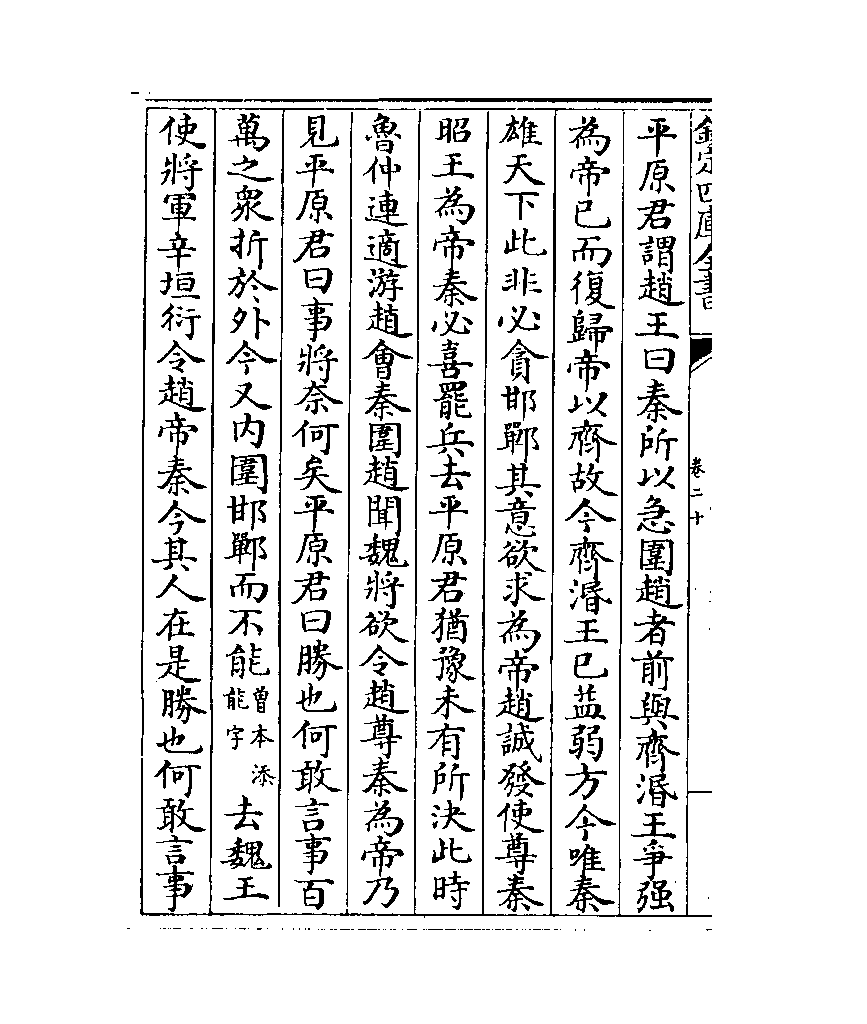 欽定四庫全書
卷二十
平原君謂趙王曰秦所以急圍趙者前與齊湣王爭强
為帝已而復歸帝以齊故今齊湣王已益弱方今唯秦
雄天下此非必貪邯鄲其意欲求為帝趙誠發使尊秦
昭王為帝秦必喜罷兵去平原君猶豫未有所決此時
魯仲連適游趙會秦圍趙聞魏將欲令趙尊秦為帝乃
見平原君曰事將奈何矣平原君曰勝也何敢言事百
萬之衆折於外今又内圍邯鄲而不能曾本添能字去魏王
使將軍辛垣衍令趙帝秦今其人在是勝也何敢言事